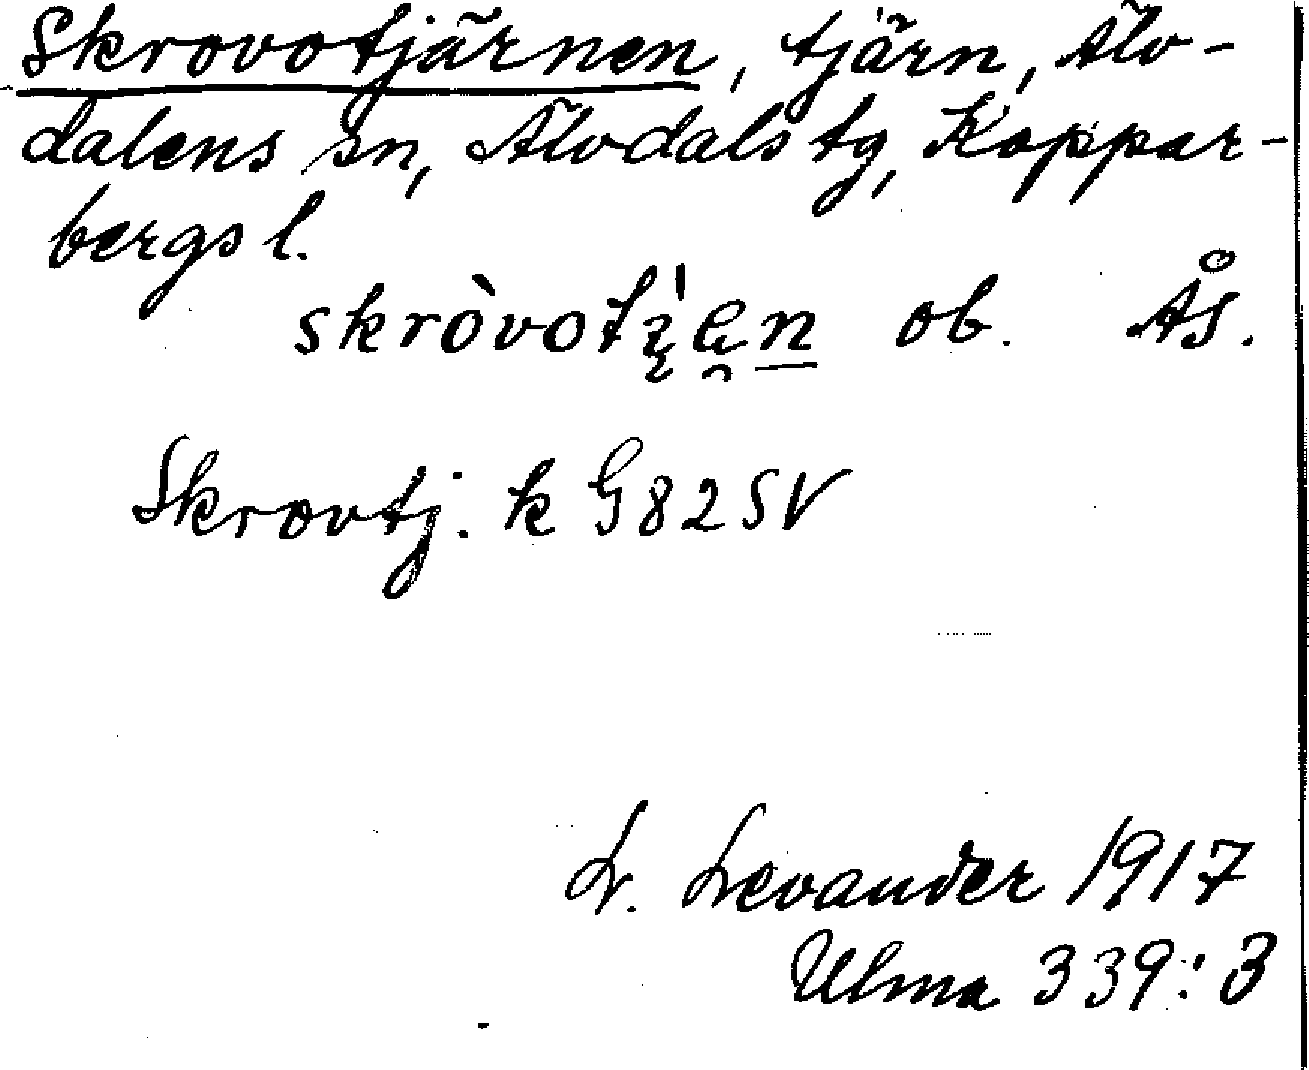 Skrovotjärnen, tjärn, Älv-
dalens sn, Älvdals tg, Koppar-
bergs l.
skròvot ob. Ås.
Skrovtj. k G82SV
L. Levander 1917
Ulma 339:3